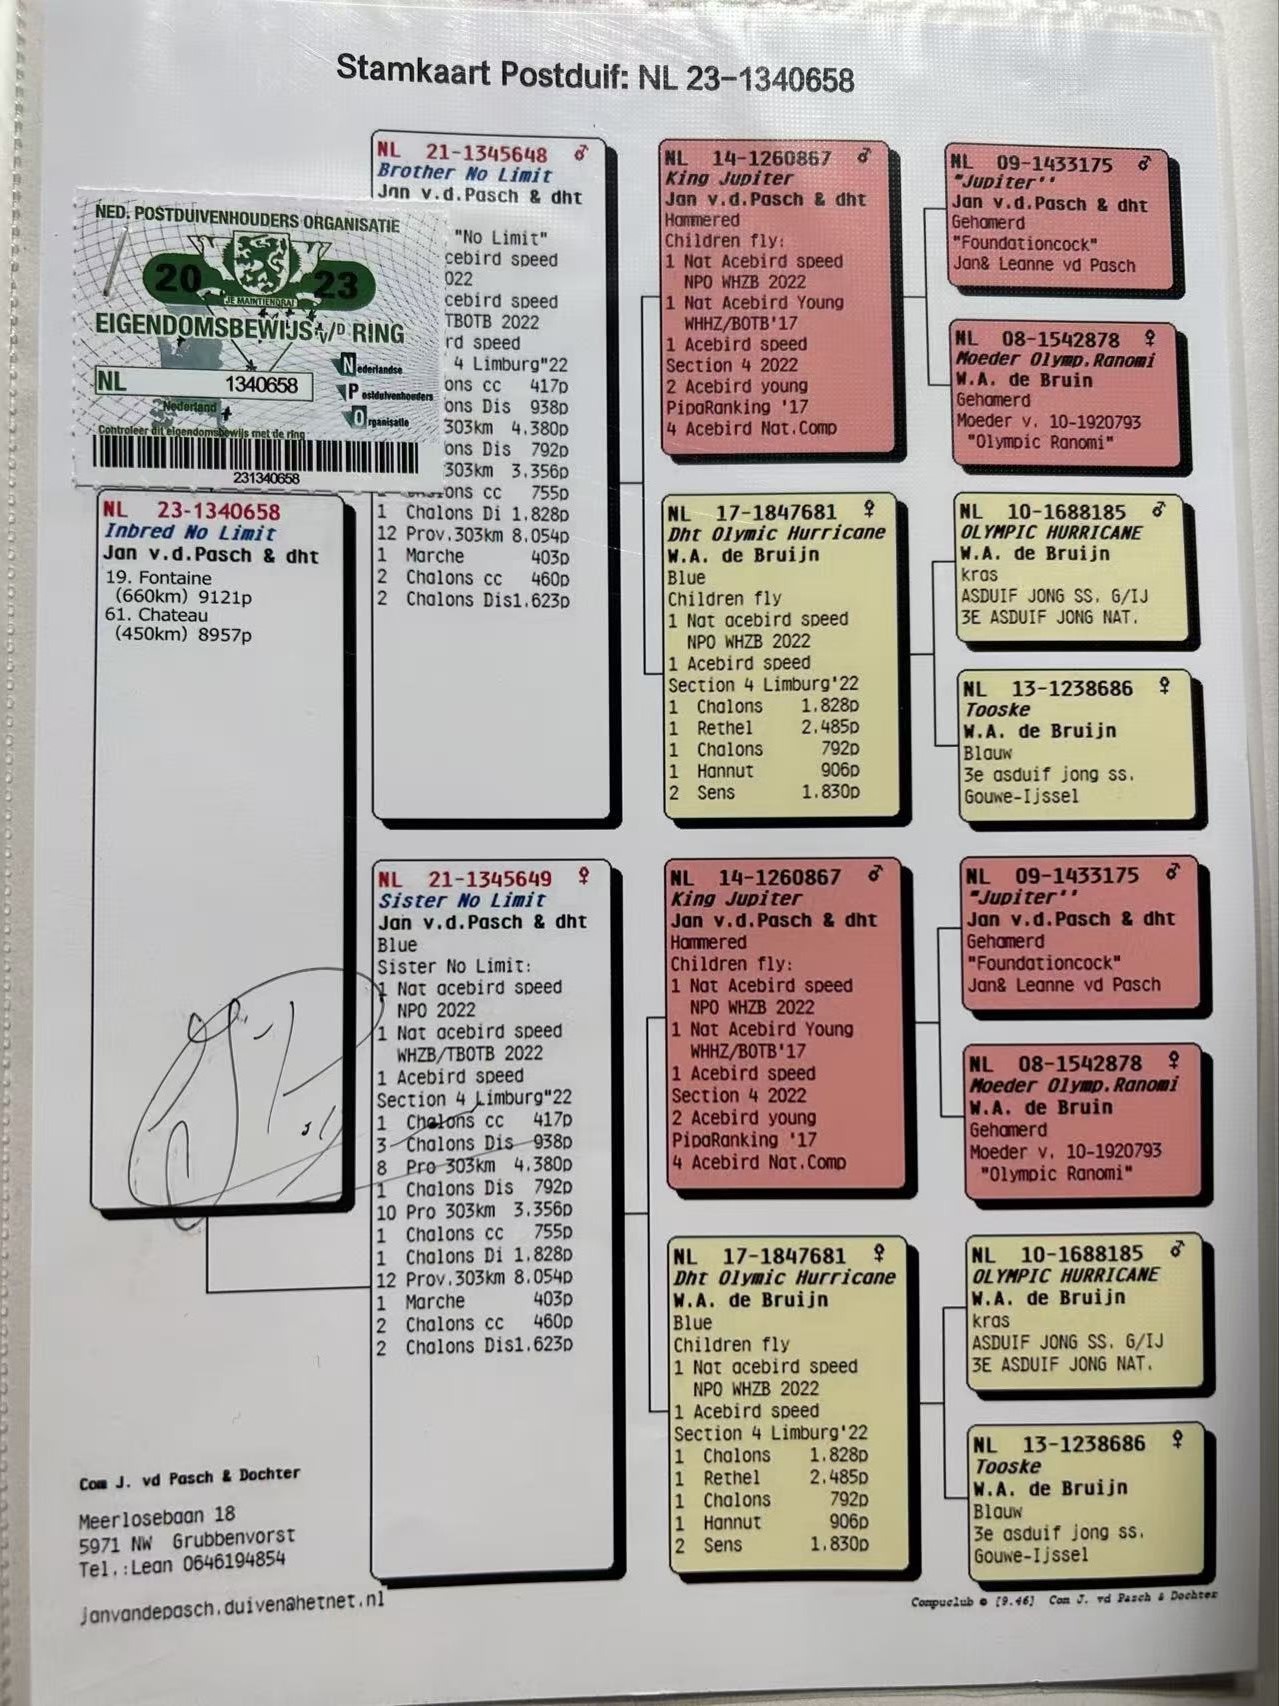 Stamkaart Postduif: NL 23-1340658
NED. POSTDUIVENHOUDERS ORGANISATIE
20 23
JE MAINTIENDRAI
EIGENDOMSBEWIJS v/D RING
NL 1340658
Nederlandse
Postduivenhouders
Organisatie
Nederland
Controleer dit eigendomsbewijs met de ring
231340658
NL 23-1340658
Inbred No Limit
Jan v.d.Pasch & dht
19. Fontaine
(660km) 9121p
61. Chateau
(450km) 8957p
NL 21-1345648 ♂
Brother No Limit
Jan v.d.Pasch & dht
"No Limit"
cebird speed
022
cebird speed
TBOTB 2022
rd speed
4 Limburg"22
ons cc 417p
ons Dis 938p
303km 4.380p
ons Dis 792p
303km 3.356p
ons cc 755p
1 Chalons Di 1.828p
12 Prov.303km 8.054p
1 Marche 403p
2 Chalons cc 460p
2 Chalons Dis1.623p
NL 21-1345649 ♀
Sister No Limit
Jan v.d.Pasch & dht
Blue
Sister No Limit:
1 Nat acebird speed
NPO 2022
1 Nat acebird speed
WHZB/TBOTB 2022
1 Acebird speed
Section 4 Limburg"22
1 Chalons cc 417p
3 Chalons Dis 938p
8 Pro 303km 4.380p
1 Chalons Dis 792p
10 Pro 303km 3.356p
1 Chalons cc 755p
1 Chalons Di 1.828p
12 Prov.303km 8.054p
1 Marche 403p
2 Chalons cc 460p
2 Chalons Dis1.623p
NL 14-1260867 ♂
King Jupiter
Jan v.d.Pasch & dht
Hammered
Children fly:
1 Nat Acebird speed
NPO WHZB 2022
1 Nat Acebird Young
WHHZ/BOTB'17
1 Acebird speed
Section 4 2022
2 Acebird young
PipaRanking '17
4 Acebird Nat.Comp
NL 17-1847681 ♀
Dht Olymic Hurricane
W.A. de Bruijn
Blue
Children fly
1 Nat acebird speed
NPO WHZB 2022
1 Acebird speed
Section 4 Limburg'22
1 Chalons 1.828p
1 Rethel 2.485p
1 Chalons 792p
1 Hannut 906p
2 Sens 1.830p
NL 14-1260867 ♂
King Jupiter
Jan v.d.Pasch & dht
Hammered
Children fly:
1 Nat Acebird speed
NPO WHZB 2022
1 Nat Acebird Young
WHHZ/BOTB'17
1 Acebird speed
Section 4 2022
2 Acebird young
PipaRanking '17
4 Acebird Nat.Comp
NL 17-1847681 ♀
Dht Olymic Hurricane
W.A. de Bruijn
Blue
Children fly
1 Nat acebird speed
NPO WHZB 2022
1 Acebird speed
Section 4 Limburg'22
1 Chalons 1.828p
1 Rethel 2.485p
1 Chalons 792p
1 Hannut 906p
2 Sens 1.830p
NL 09-1433175 ♂
"Jupiter''
Jan v.d.Pasch & dht
Gehamerd
"Foundationcock"
Jan& Leanne vd Pasch
NL 08-1542878 ♀
Moeder Olymp.Ranomi
W.A. de Bruin
Gehamerd
Moeder v. 10-1920793
"Olympic Ranomi"
NL 10-1688185 ♂
OLYMPIC HURRICANE
W.A. de Bruijn
kras
ASDUIF JONG SS. G/IJ
3E ASDUIF JONG NAT.
NL 13-1238686 ♀
Tooske
W.A. de Bruijn
Blauw
3e asduif jong ss.
Gouwe-Ijssel
NL 09-1433175 ♂
"Jupiter''
Jan v.d.Pasch & dht
Gehamerd
"Foundationcock"
Jan& Leanne vd Pasch
NL 08-1542878 ♀
Moeder Olymp.Ranomi
W.A. de Bruin
Gehamerd
Moeder v. 10-1920793
"Olympic Ranomi"
NL 10-1688185 ♂
OLYMPIC HURRICANE
W.A. de Bruijn
kras
ASDUIF JONG SS. G/IJ
3E ASDUIF JONG NAT.
NL 13-1238686 ♀
Tooske
W.A. de Bruijn
Blauw
3e asduif jong ss.
Gouwe-Ijssel
Com J. vd Pasch & Dochter
Meerlosebaan 18
5971 NW Grubbenvorst
Tel.:Lean 0646194854
janvandepasch.duiven@hetnet.nl
Compuclub © [9.46] Com J. vd Pasch & Dochter